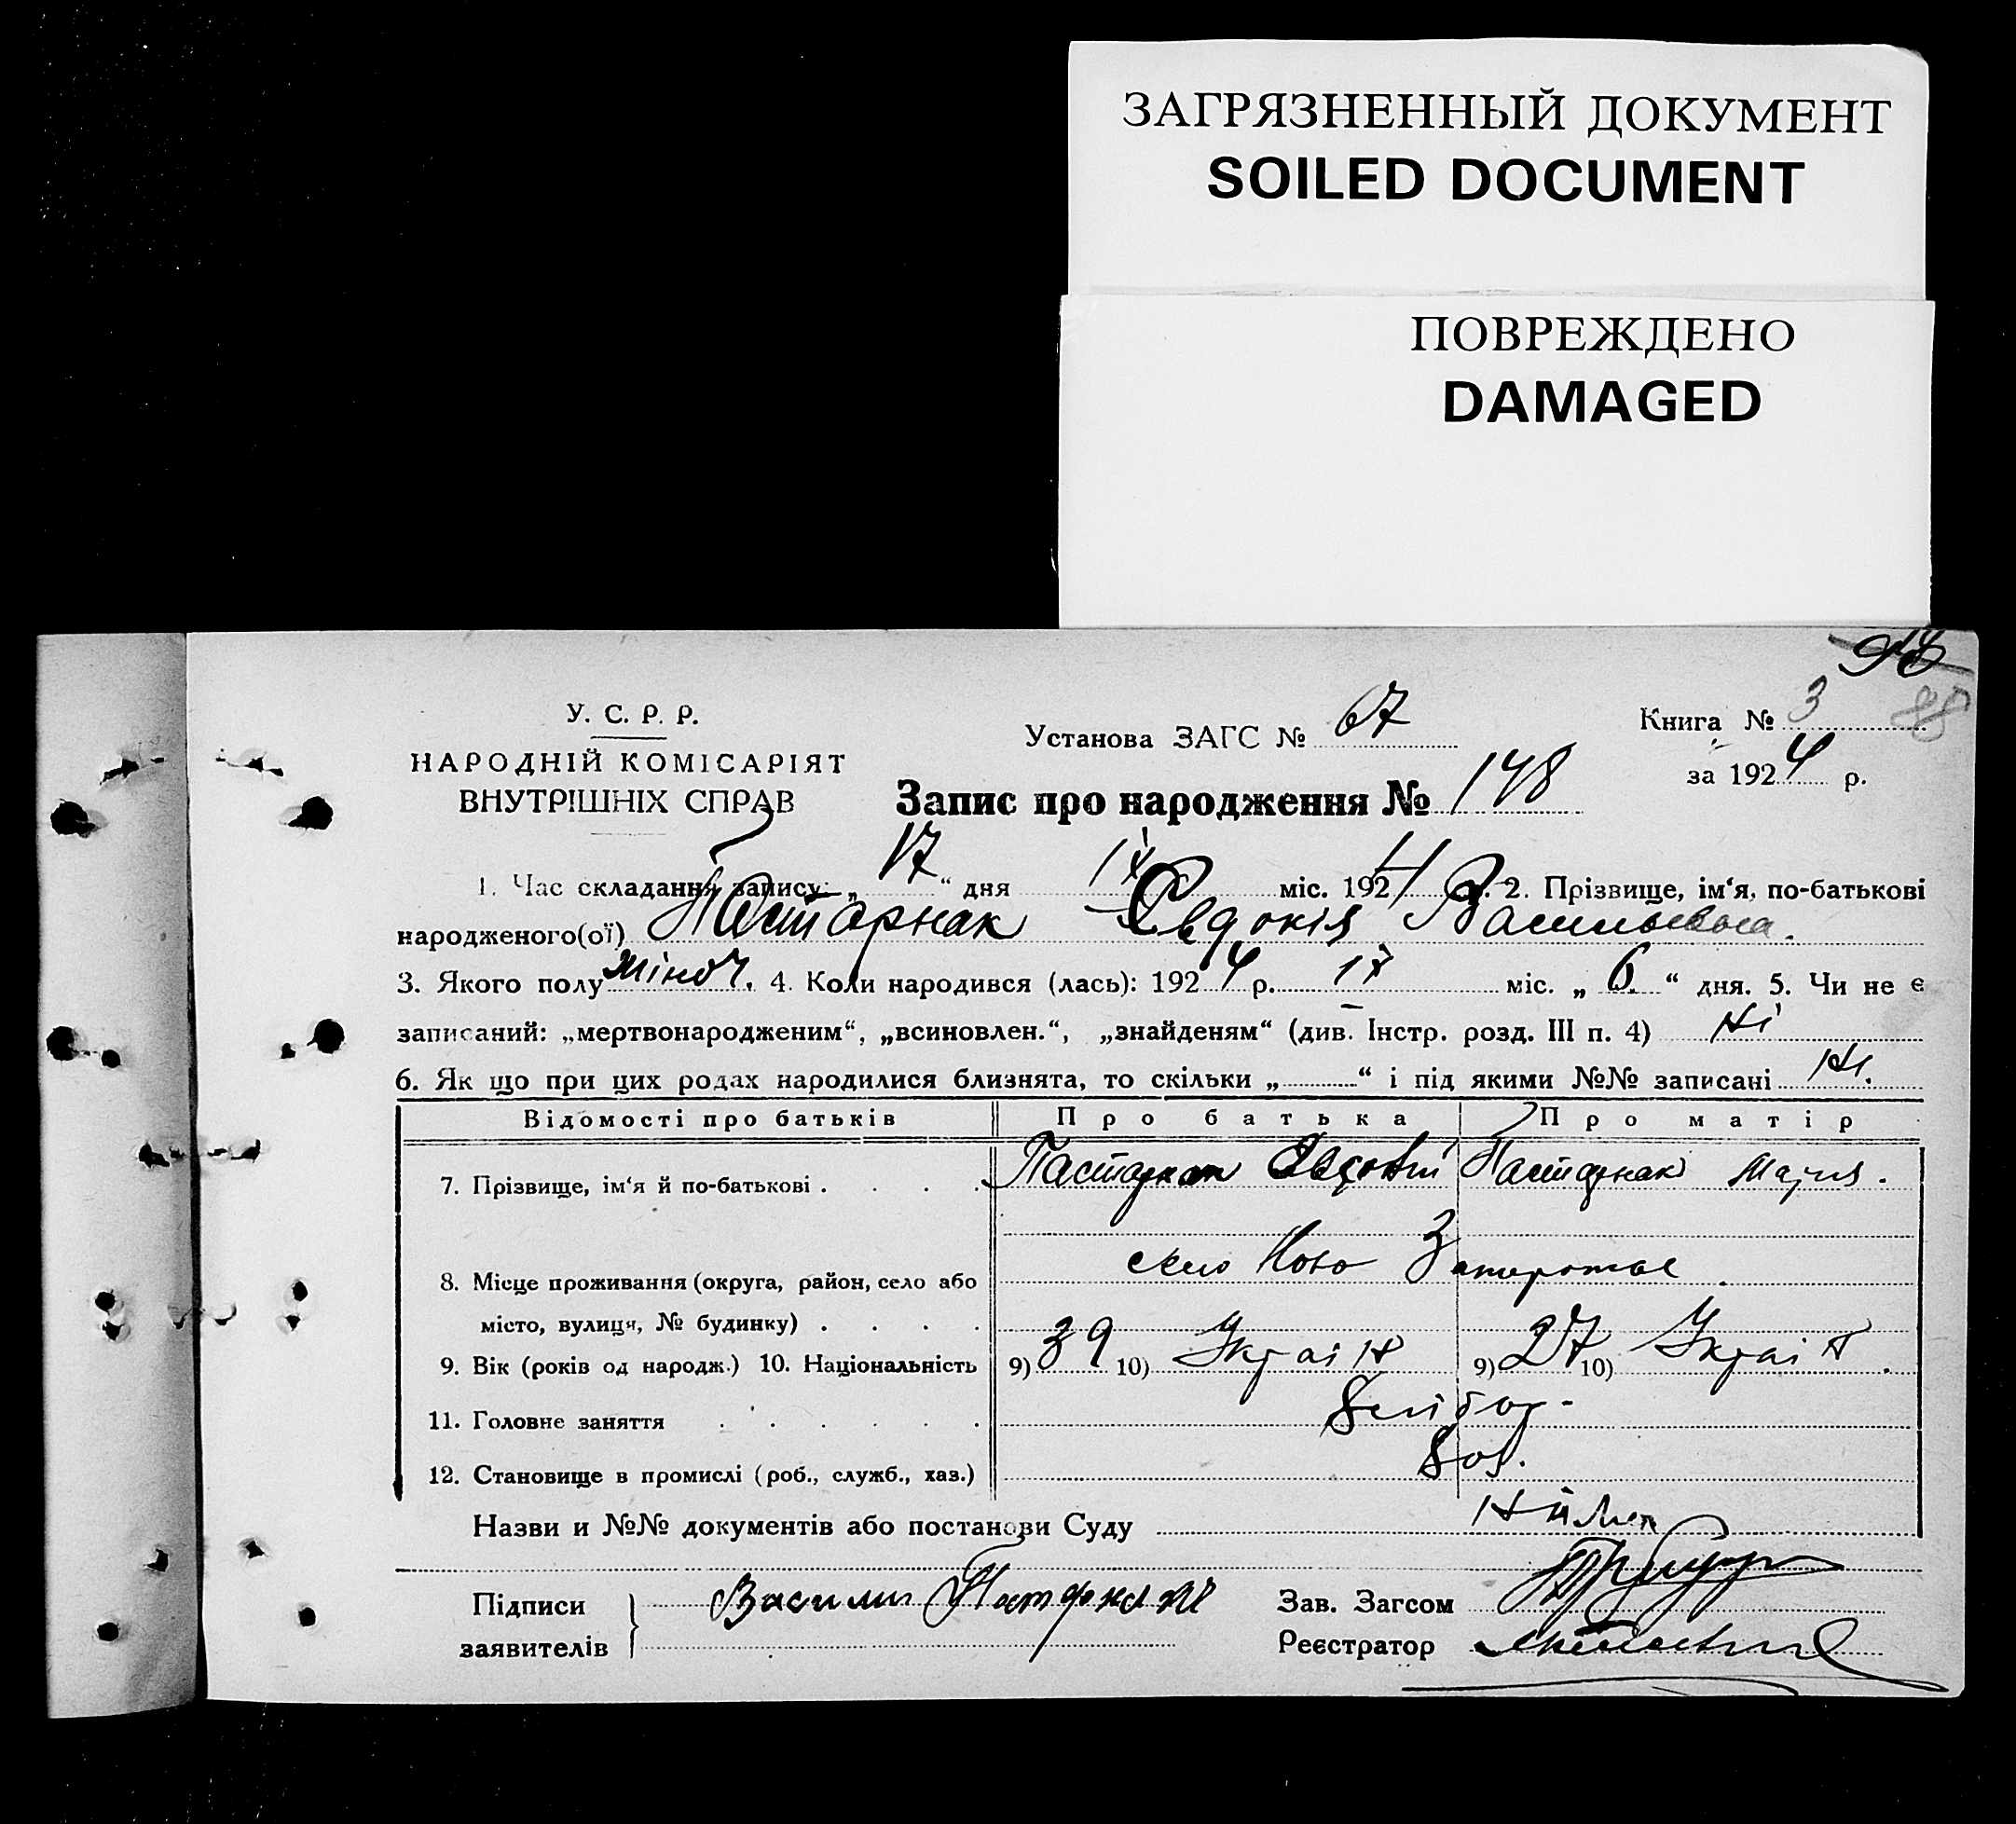 ЗАГРЯЗНЕННЫЙ ДОКУМЕНТ
SOILED DOCUMENT
ПОВРЕЖДЕНО
DAMAGED
У. С. Р. Р.
НАРОДНІЙ КОМІСАРІЯТ
ВНУТРІШНІХ СПРАВ
Установа ЗАГС № 67
Книга № 3 88
за 1924 р.
Запис про народження № 148
1. Час складання запису: „17“ дня IX міс. 1924 р. 2. Прізвище, ім‘я, по-батькові
народженого(ої) Пастарнак Євдокія Васильевна.
3. Якого полу жіноч. 4. Коли народився (лась): 1924 р. IX міс. „6.“ дня. 5. Чи не є
записаний: „мертвонародженим“, „всиновлен.“, „знайденям“ (див. Інстр. розд. III п. 4) Ні
6. Як що при цих родах народилися близнята, то скільки „ “ і під якими №№ записані Ні.
Відомості про батьків Про батька Про матір
7. Прізвище, ім‘я й по-батькові . . . . Пастарнак Пастарнак Мария.
село Ново
8. Місце проживання (округа, район, село або
місто, вулиця, № будинку) . . . .
9. Вік (років од народж.) 10. Національність 9) 39 10) Украін 9) 27 10) Украін.
11. Головне заняття . . . . . .
12. Становище в промислі (роб., служб., хаз.)
Назви и №№ документів або постанови Суду
Підписи
заявителів
Василий Пастарнак
Зав. Загсом
Реєстратор